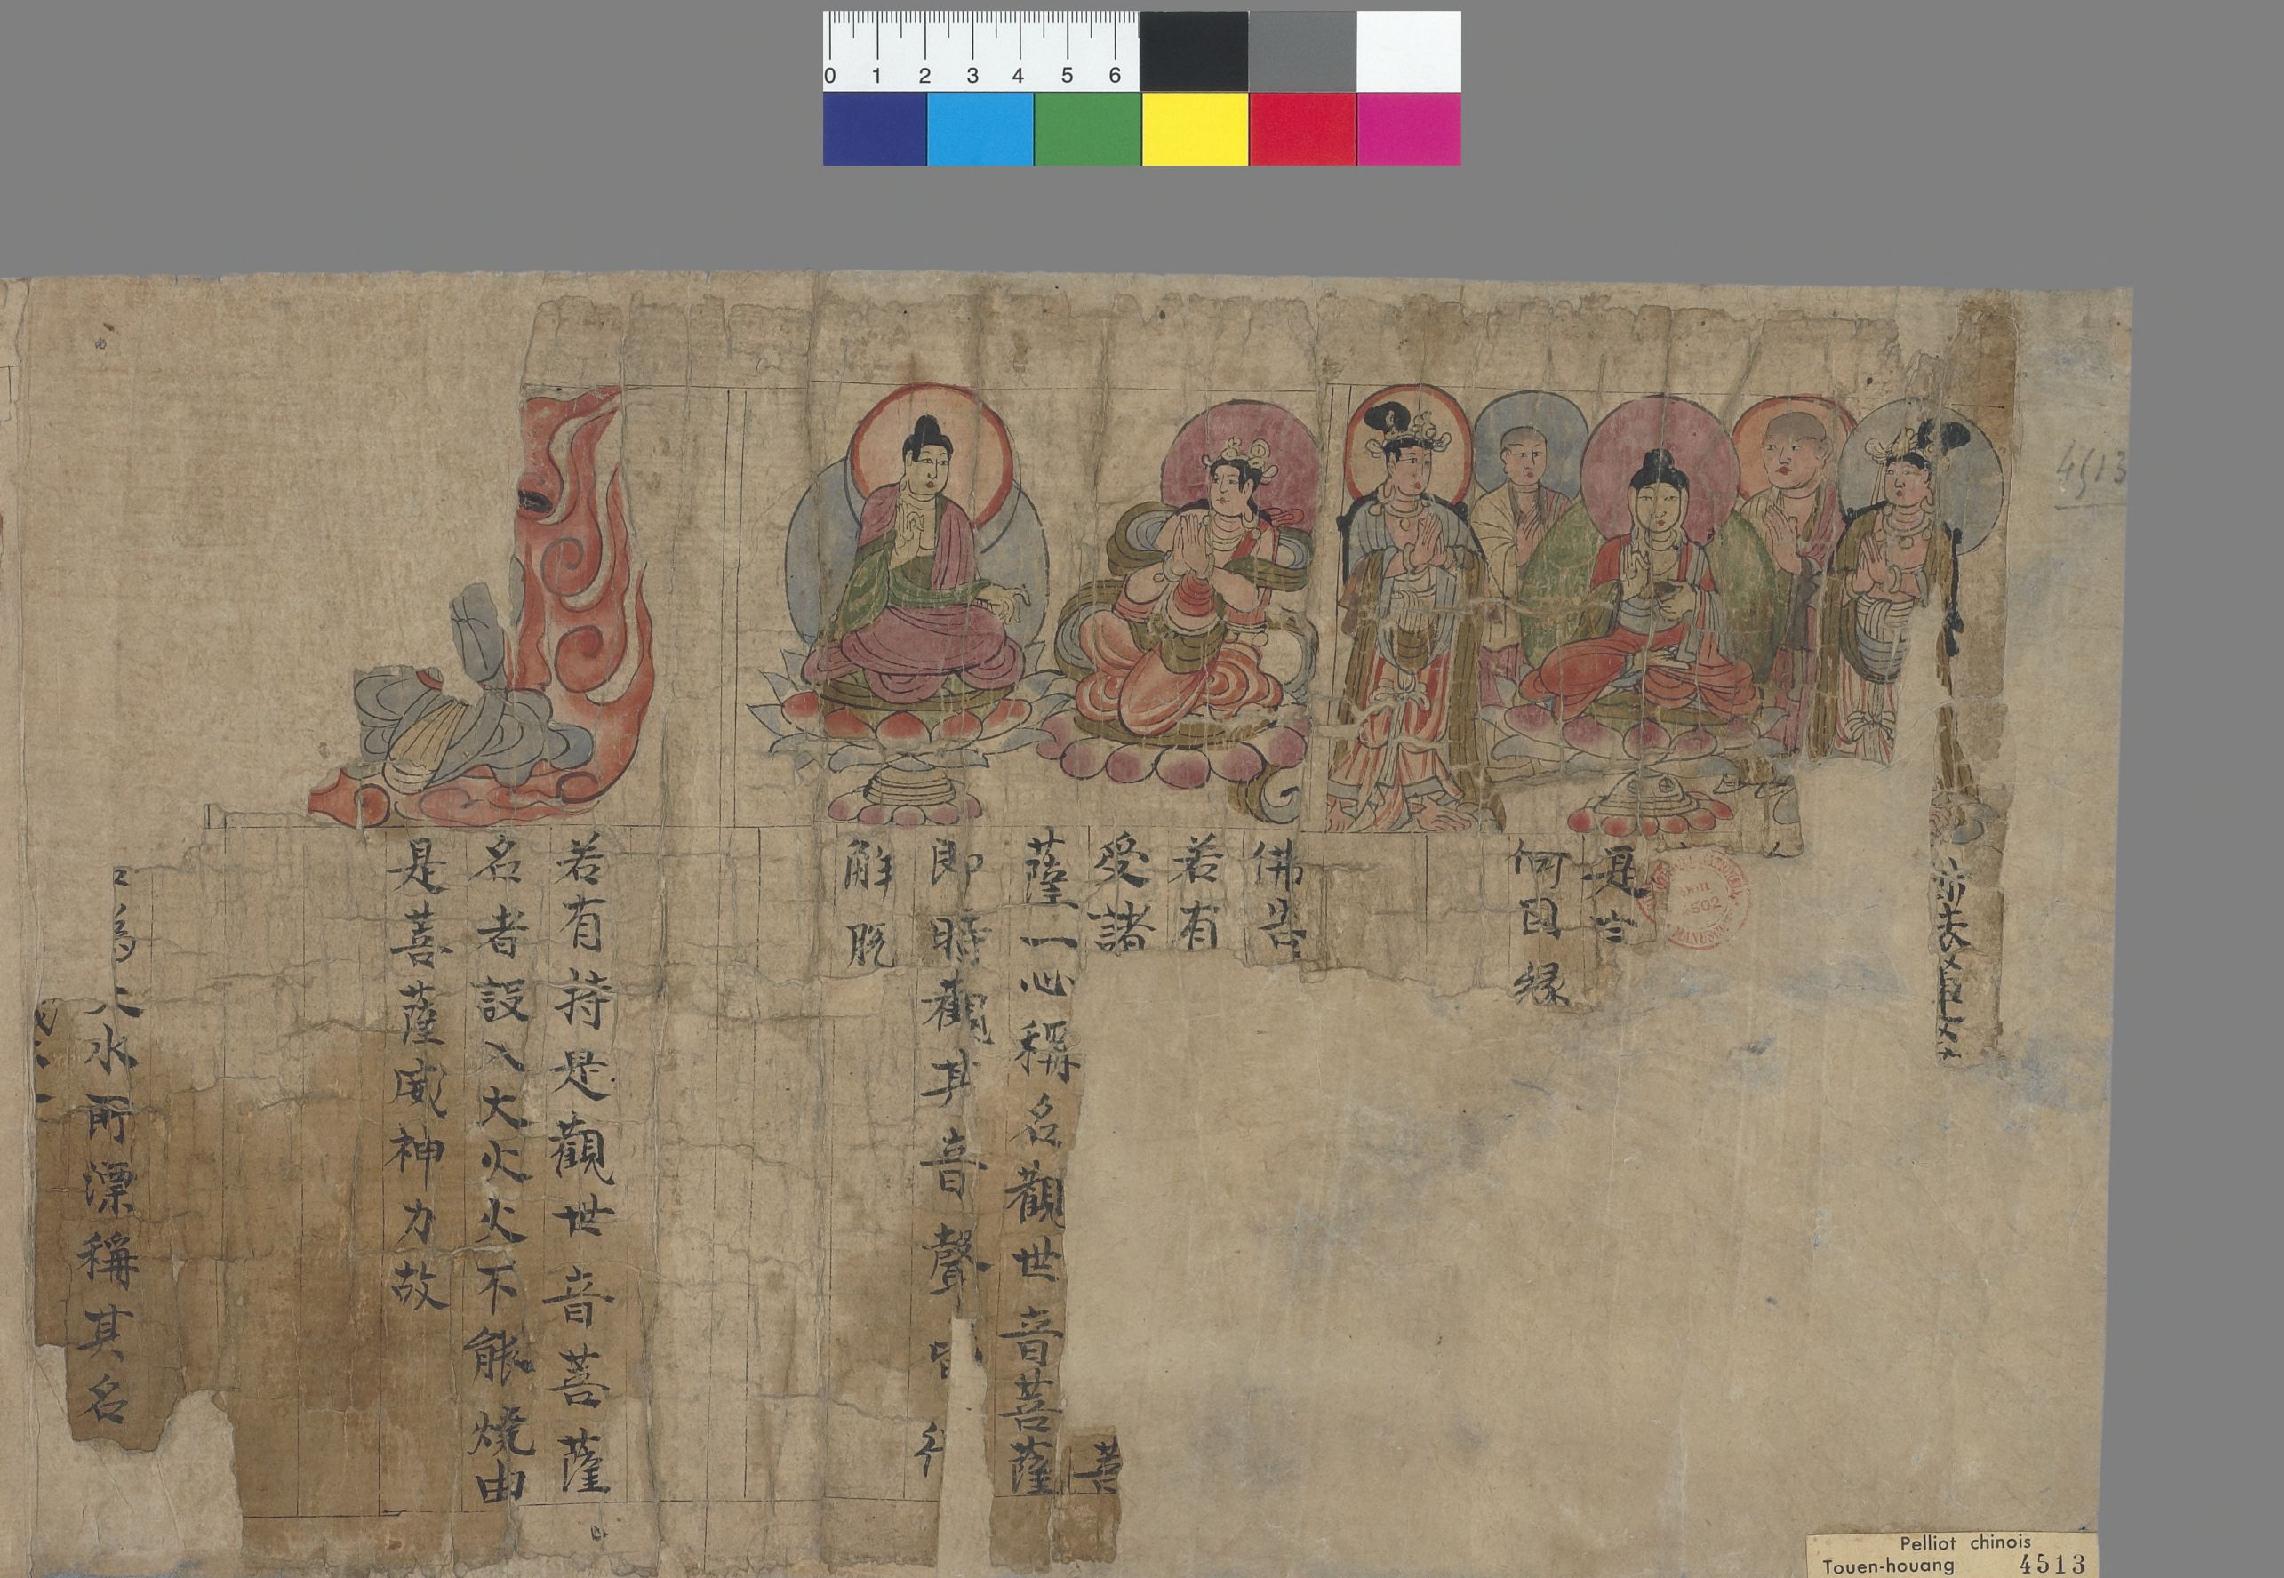 0 1 2 3 4 5 6
4513
是
何因縁
佛告
若有
受諸 菩
薩一心稱名觀世音菩薩
即時觀其音聲皆得
解脫
若有持是觀世音菩薩
名者設入大火火不能燒由
是菩薩威神力故
為大水所漂稱其名
Pelliot chinois
Touen-houang 4513